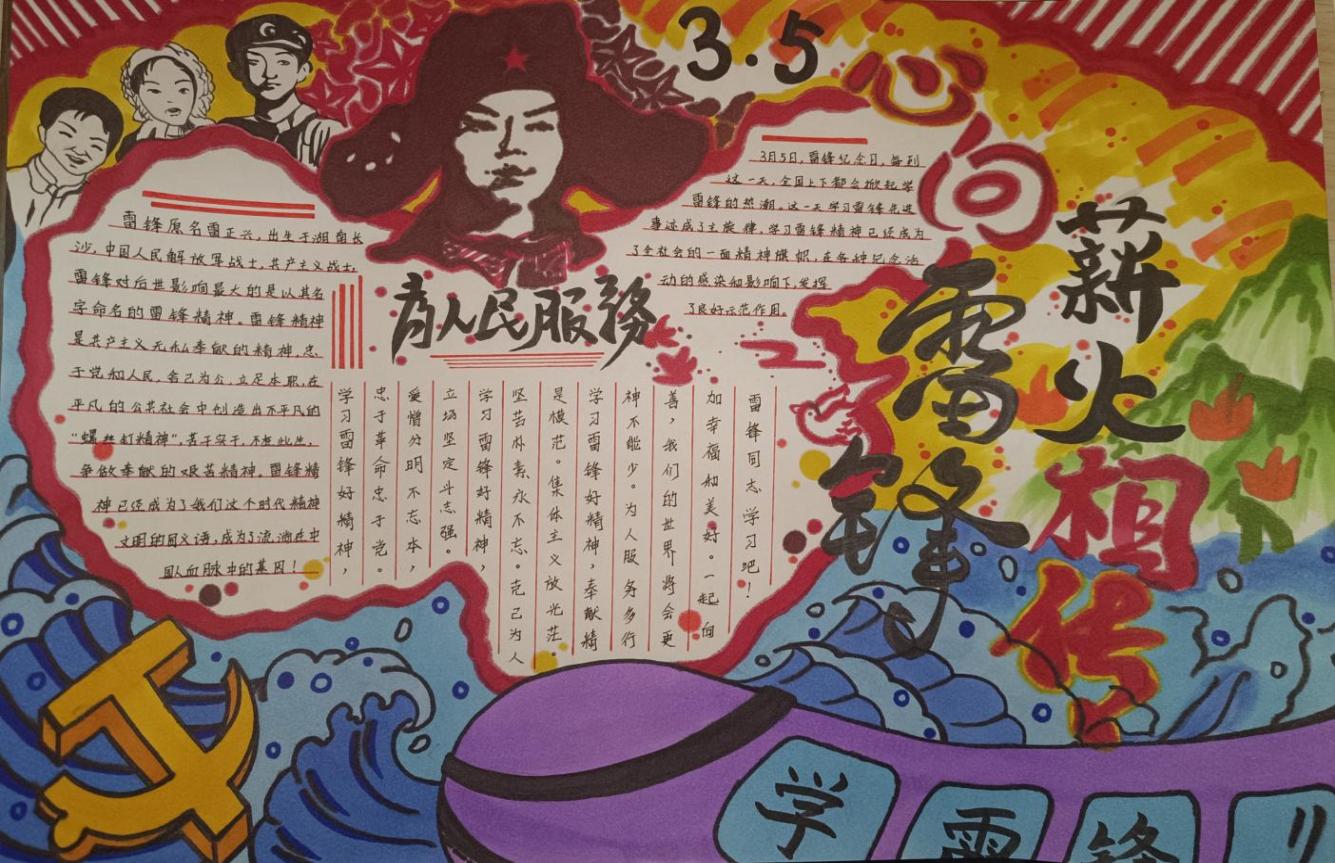 3.5
心向雷锋
薪火相传
雷锋原名雷正兴，出生于湖南长
沙，中国人民解放军战士，共产主义战士，
雷锋对后世影响最大的是以其名
字命名的雷锋精神。雷锋精神
是共产主义无私奉献的精神，忠
于党和人民，舍己为公，立足本职，在
平凡的公共社会中创造出不平凡的
“螺丝钉精神”，苦干实干，不想此生，
争做奉献的艰苦精神。雷锋精
神已经成为了我们这个时代精神
文明的同义语，成为了流淌在中
国人血脉中的基因！
为人民服務
3月5日，雷锋纪念日，每到
这一天，全国上下都会掀起学
雷锋的热潮。这一天学习雷锋先进
事迹成了主旋律，学习雷锋精神已经成为
了全社会的一面精神旗帜，在各种纪念活
动的感染和影响下，发挥
了良好示范作用。
学习雷锋好精神，
忠于革命忠于党。
爱憎分明不忘本，
立场坚定斗志强。
学习雷锋好精神，
坚苦朴素永不忘。克己为人
是模范。集体主义放光芒。
学习雷锋好精神，奉献精
神不能少。为人服务多行
善，我们的世界将会更
加幸福和美好。一起向
雷锋同志学习吧！
学雷锋